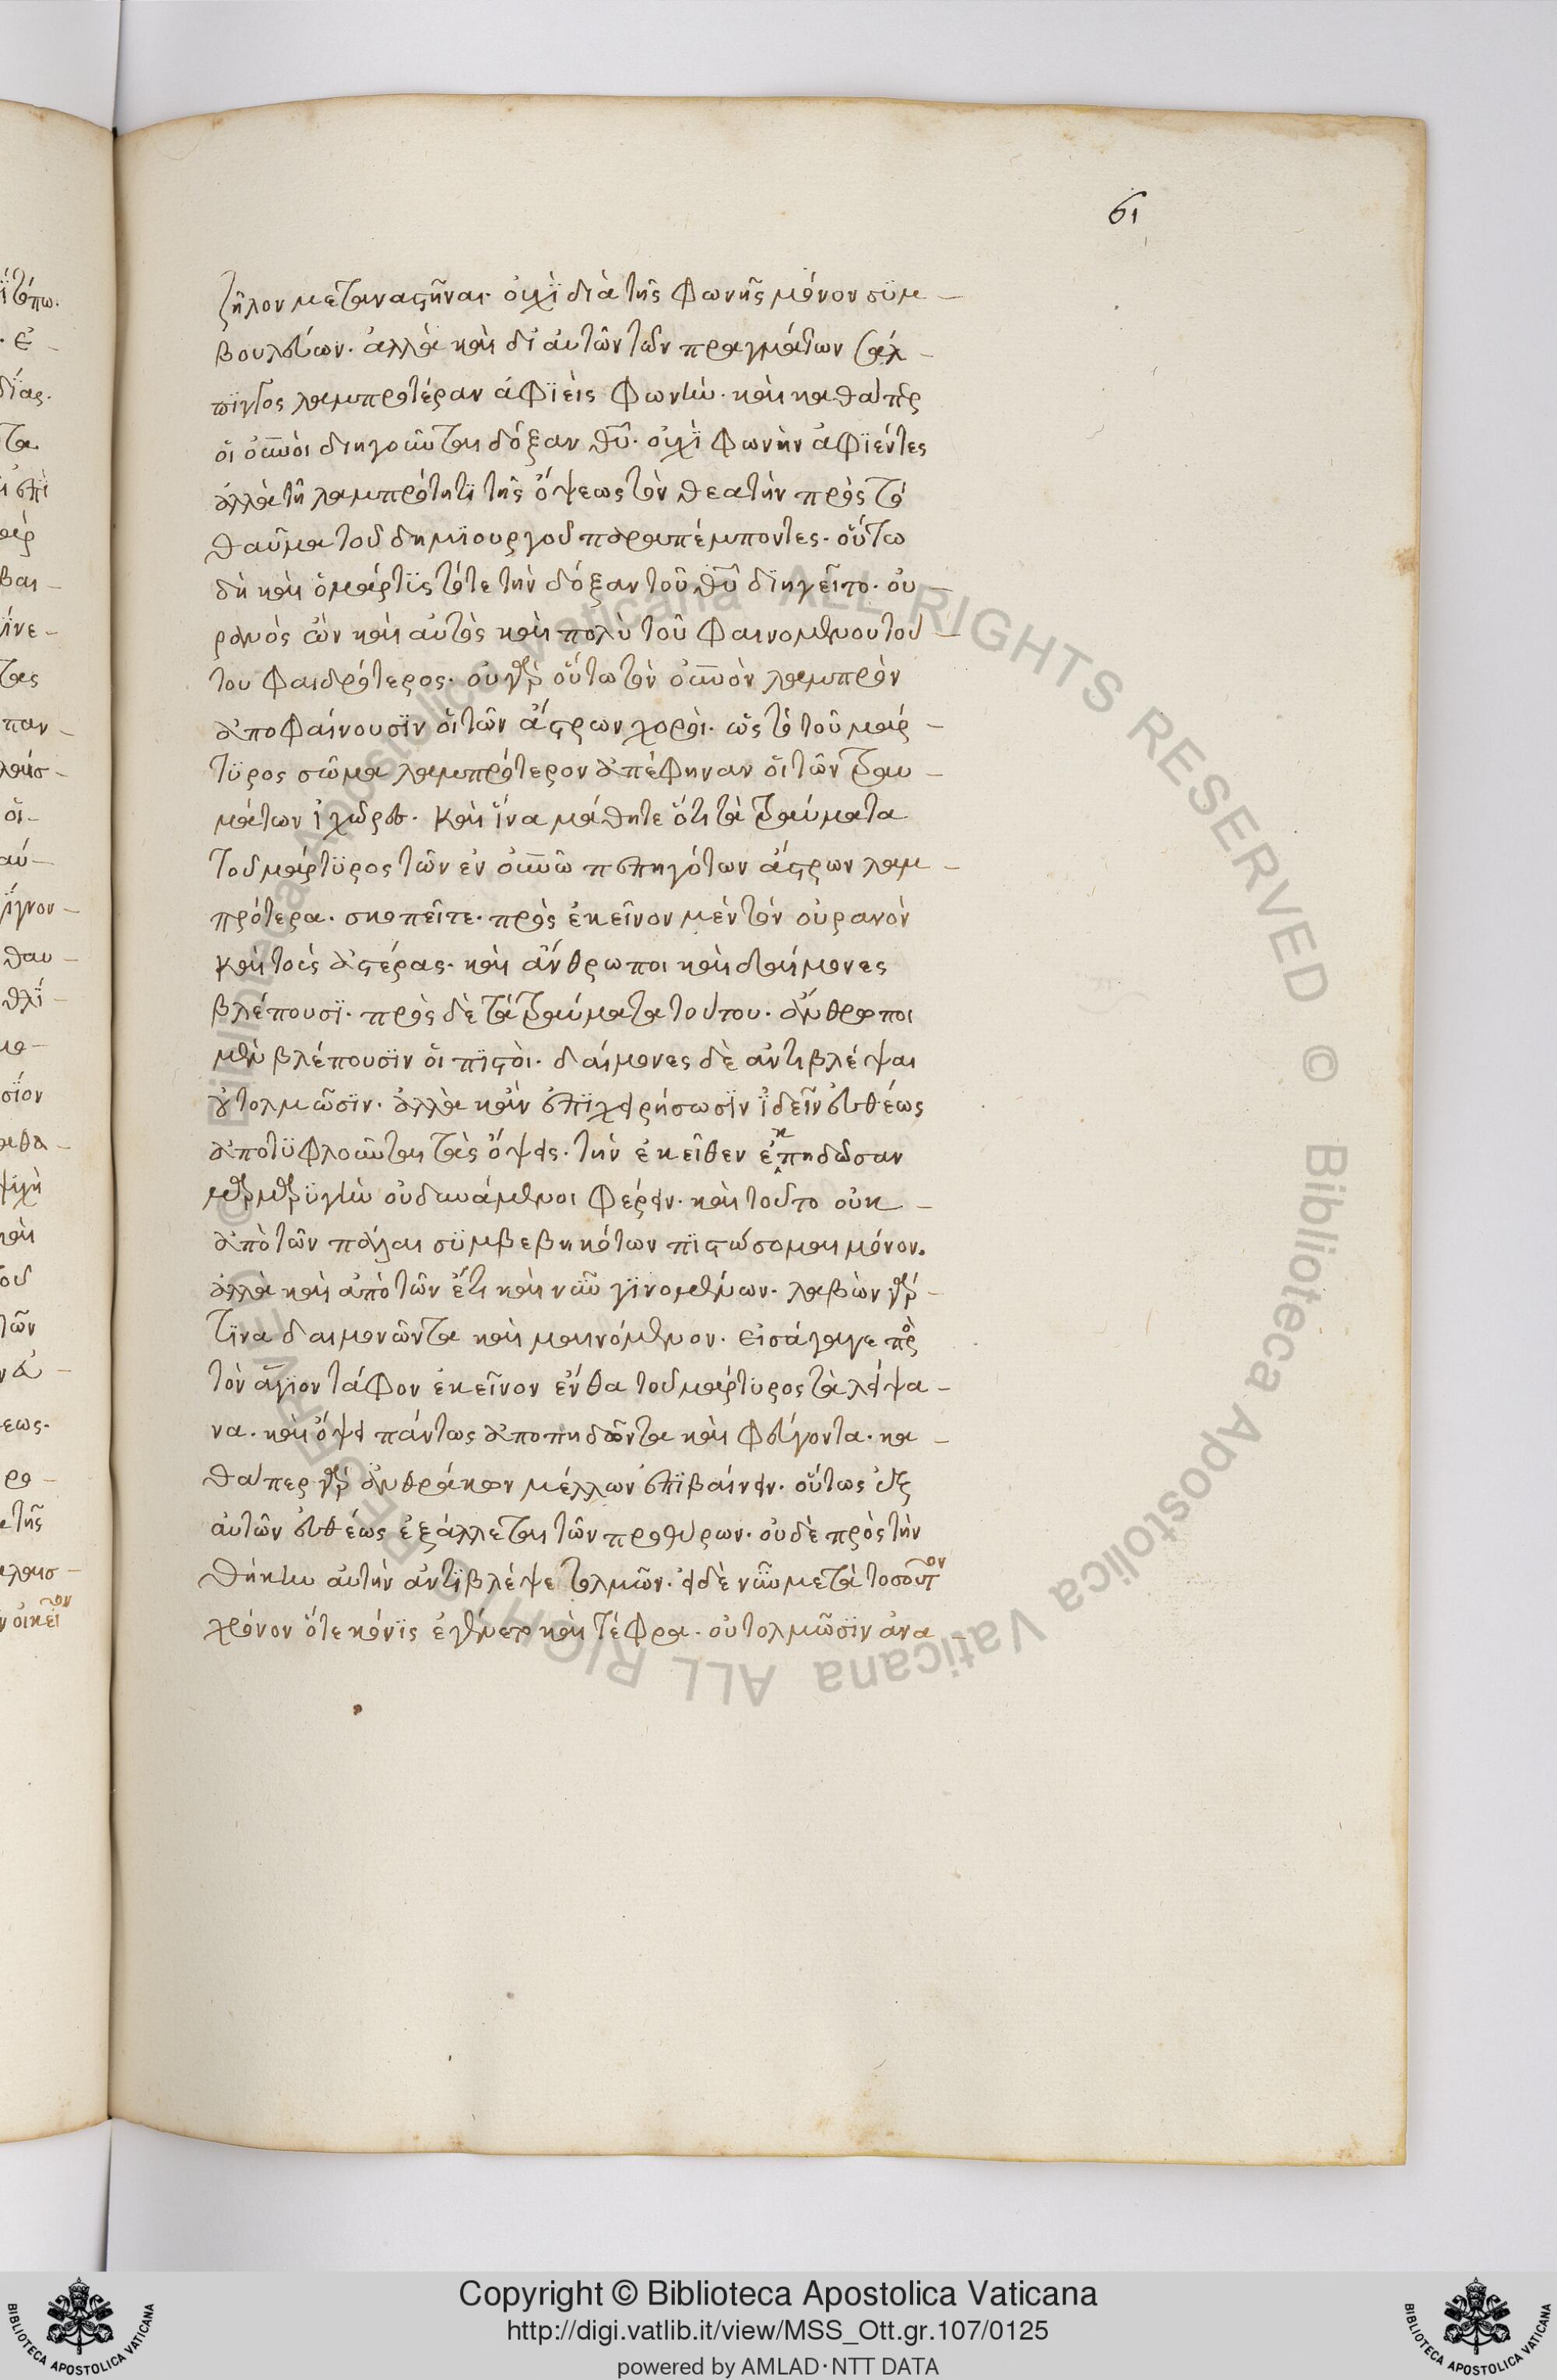 61
ζῆλον μεταναστῆναι· οὐχὶ διὰ τῆς φωνῆς μόνον συμ-
βουλεύων· ἀλλὰ καὶ δι αὐτῶν τῶν πραγμάτων σάλ-
πιγγος λαμπροτέραν ἀφιεὶς φωνήν· καὶ καθάπερ
οἱ οὐνοὶ διηγοῦνται δόξαν θῦ· οὐχὶ φωνὴν ἀφιέντες
ἀλλὰ τῇ λαμπρότητι τῆς ὄψεως τὸν θεατὴν πρὸς τὸ
θαῦμα τοῦ δημιουργοῦ παραπέμποντες· οὕτω
δὴ καὶ ὁ μάρτις τότε τὴν δόξαν τοῦ θῦ διηγεῖτο· οὐ-
ρανὸς ὢν καὶ αὐτὸς καὶ πολὺ τοῦ φαινομένου τού-
του φαιδρότερος· οὐ γὰρ οὕτω τὸν οὐνὸν λαμπρὸν
ἀποφαίνουσιν οἱ τῶν ἄστρων χοροὶ· ὡς τὸ τοῦ μάρ-
τυρος σῶμα λαμπρότερον ἀπέφηναν οἱ τῶν τραυ-
μάτων ἰχῶρες· καὶ ἵνα μάθητε ὅτι τὰ τραύματα
τοῦ μάρτυρος τῶν ἐν οὐνῶ πεπηγότων ἄστρων λαμ-
πρότερα· σκοπεῖτε· πρὸς ἐκεῖνον μὲν τὸν οὐρανὸν
καὶ τοὺς ἀστέρας· καὶ ἄνθρωποι καὶ δαίμονες
βλέπουσι· πρὸς δὲ τὰ τραύματα τούτου· ἄνθρωποι
μὲν βλέπουσιν οἱ πιστοὶ· δαίμονες δὲ ἀντιβλέψαι
οὐ τολμῶσιν· ἀλλὰ κἂν ἐπιχειρήσωσιν ἰδεῖν εὐθέως
ἀποτυφλοῦνται τὰς ὄψεις· τὴν ἐκεῖθεν ἐκπηδῶσαν
μαρμαρυγὴν οὐ δυνάμενοι φέρειν· καὶ τοῦτο οὐκ-
ἀπὸ τῶν πάλαι συμβεβηκότων πιστώσομαι μόνον.
ἀλλὰ καὶ ἀπὸ τῶν ἔτι καὶ νῦν γινομένων· λαβὼν γάρ-
τινα δαιμονῶντα καὶ μαινόμενον· εἰσάγαγε πρὸς
τὸν ἅγιον τάφον ἐκεῖνον ἔνθα τοῦ μάρτυρος τὰ λείψα-
να· καὶ ὄψει πάντως ἀποπηδῶντα καὶ φεύγοντα· κα-
θάπερ γὰρ ἀνθράκων μέλλων ἐπιβαίνειν· οὕτως ἐξ
αὐτῶν εὐθέως ἐξάλλεται τῶν προθύρων· οὐδὲ πρὸς τὴν
θήκην αὐτὴν ἀντιβλέψε τολμῶν· εἰ δὲ νῦν μετὰ τοσοῦτον
χρόνον ὅτε κόνις ἐγένετο καὶ τέφρα· οὐ τολμῶσιν ἀνα-
Biblioteca Apostolica Vaticana ALL RIGHTS RESERVED ©
Copyright © Biblioteca Apostolica Vaticana
http://digi.vatlib.it/view/MSS_Ott.gr.107/0125
powered by AMLAD·NTT DATA
BIBLIOTECA APOSTOLICA VATICANA
BIBLIOTECA APOSTOLICA VATICANA